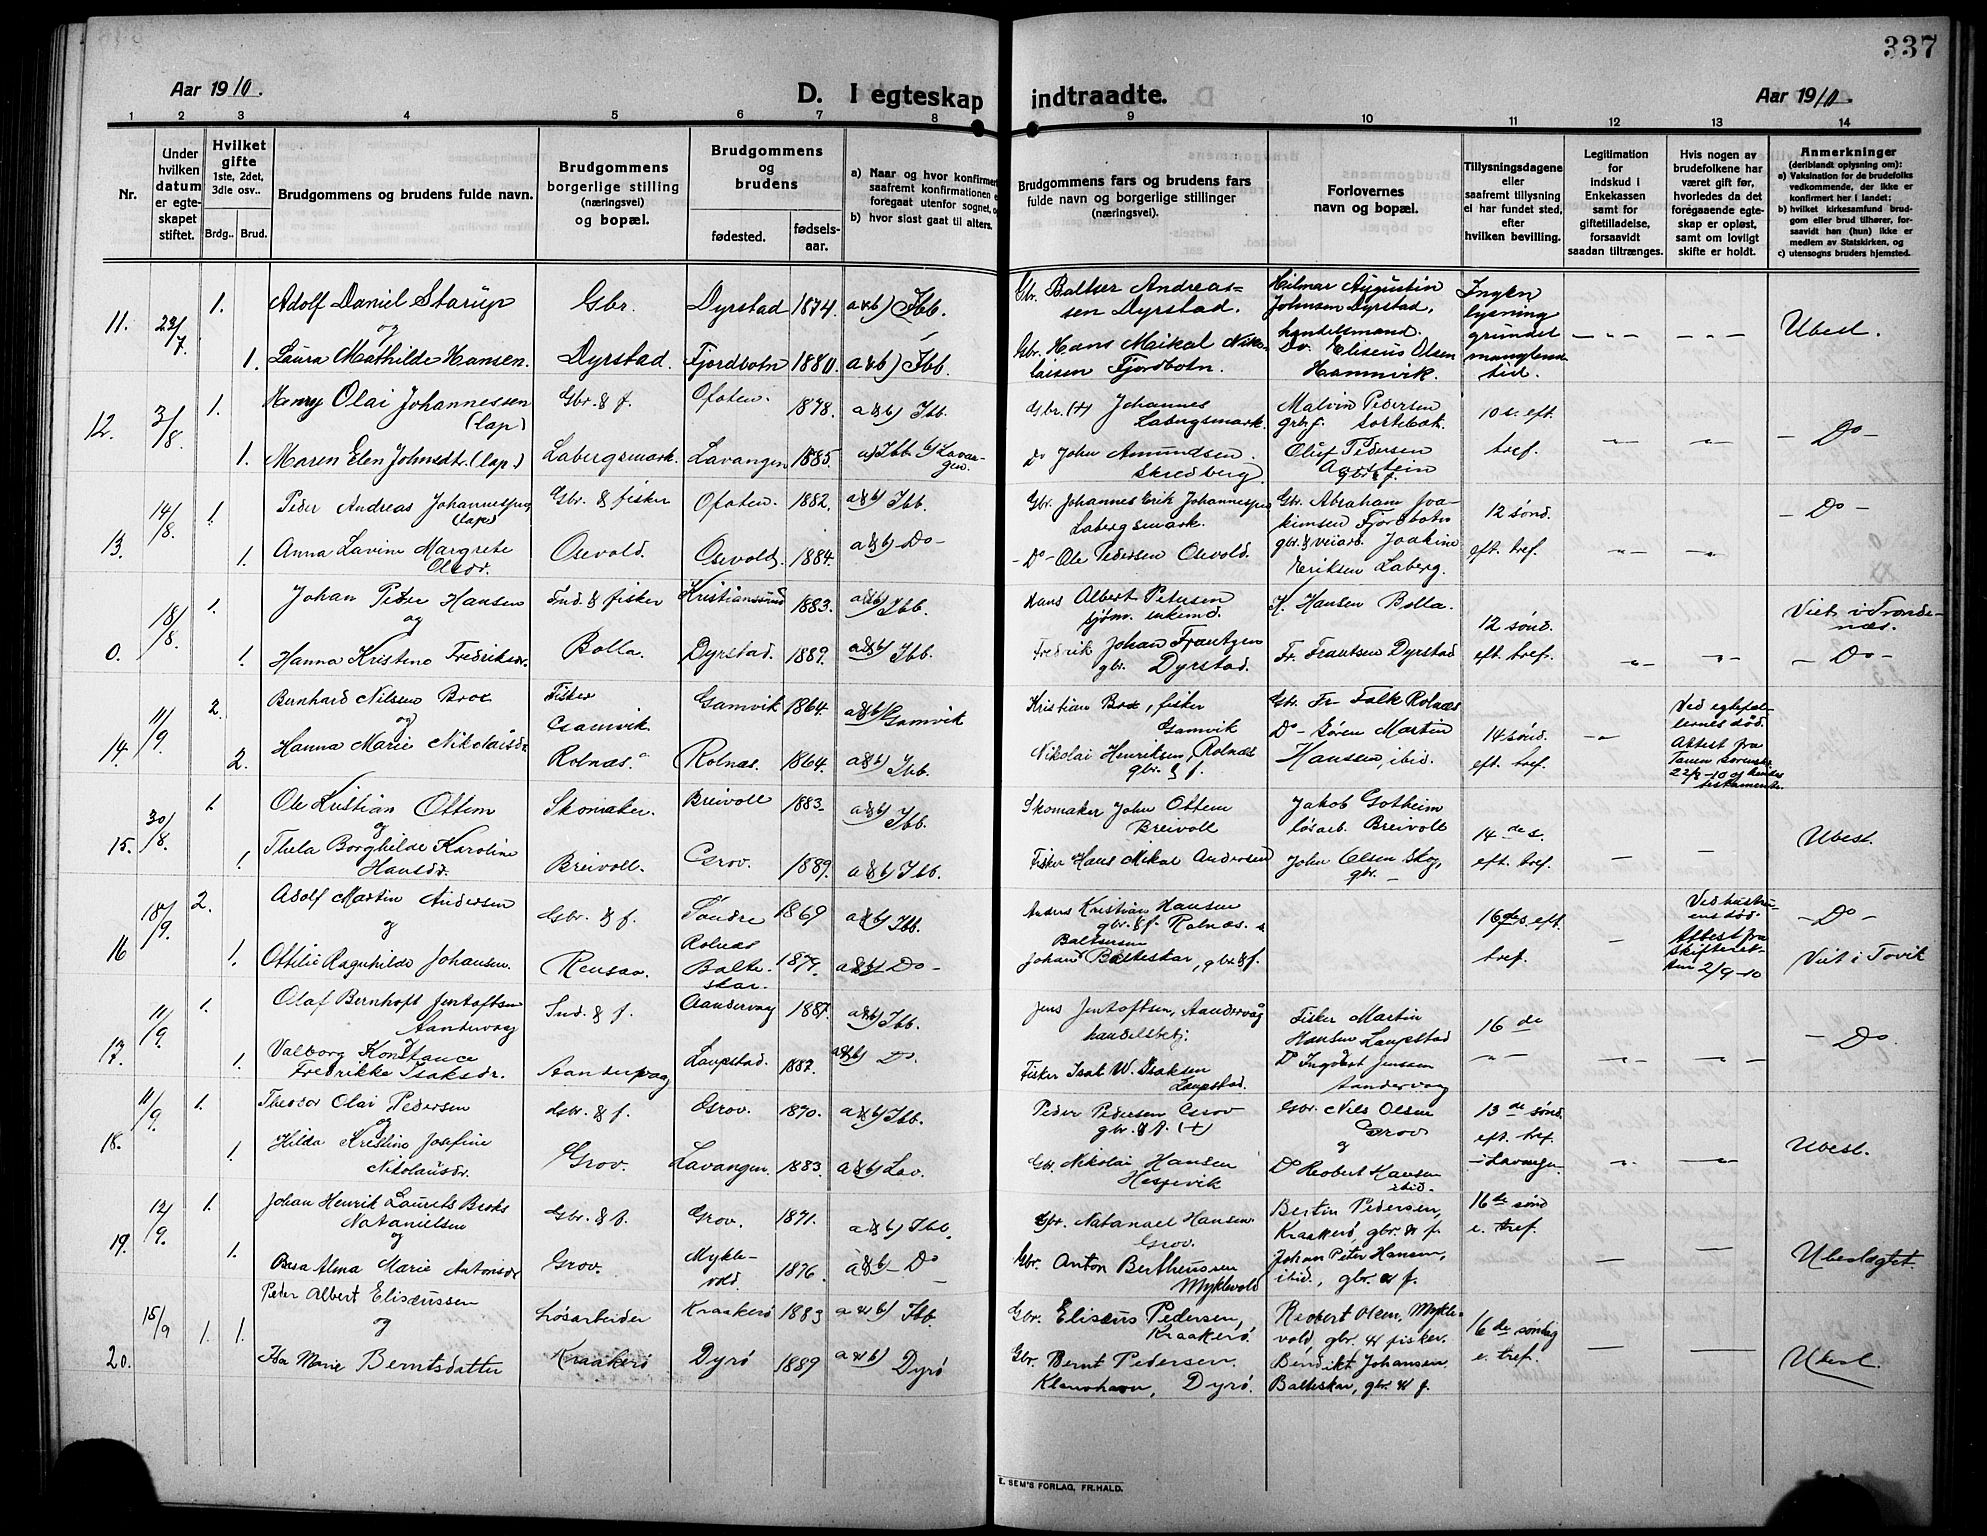 337
Aar 1910.
D. I egteskap indtraadte.
Aar 1910.
1 2 3 4 5 6 7 8 9 10 11 12 13 14
Nr.
Under hvilken datum er egteskapet stiftet.
Hvilket gifte 1ste, 2det, 3dle osv..
Brdg.. Brud.
Brudgommens og brudens fulde navn.
Brudgommens borgerlige stilling (næringsvei) og bopæl.
Brudgommens og brudens
fødested. fødselsaar.
a) Naar og hvor konfirmer
saafremt konfirmationen e
foregaat utenfor sognet, o
b) hvor sidst gaat til alters.
Brudgommens fars og brudens fars fulde navn og borgerlige stillinger (næringsvei).
Forlovernes navn og bopæl.
Tillysningsdagene eller saafremt tillysning ei har fundet sted, efter hvilken bevilling.
Legitimation for indskud i Enkekassen samt for giftetilladelse, forsaavidt saadan tiltrænges.
Hvis nogen av brudefolkene har været gift før, hvorledes da det foregaaende egteskap er opløst, samt om lovligt skifte er holdt.
Anmerkninger (deriblandt oplysning om): a) Vaksination for de brudefolks vedkommende, der ikke er konfirmert her i landet; b) hvilket kirkesamfund brudgom eller brud tilhører, forsaavidt han (hun) ikke er medlem av Statskirken, og c) utensogns bruders hjemsted.
11. 22/7. 1. Adolf Daniel Starup Gbr. Dyrstad 1874. a & b) Ibb. Gbr. Baltser Andreassen Dyrstad. Hilmar Augustin Johnsen Dyrstad, handelsmand. Ingen lysning grundet manglende tid. Ubest.
og
1. Laura Mathilde Hansen. Dyrstad. Fjordbotn 1880. a & b) Ibb. Gbr. Hans Mikal Nikolaisen Fjordbotn. Do. Eliseus Olsen Hamnvik.
12. 3/8. 1. Henry Olai Johannessen (lap) Gbr. & f. Ofoten. 1878. a & b) Ibb. Gbr. (+) Johannes Labergsmark. Malvin Pedersen gbr. f. 10 s. eft. tref. - Do -
1. Maren Elen Johnsdtr. (lap) Labergsmark. Lavangen 1885. a) Ibb b) Lavangen. Do John Amundsen Skredberg. Oluf Pedersen gbr. & f.
13. 14/8. 1. Peder Andreas Johannessen (lap) Gbr. & fisker Ofoten. 1882. a & b) Ibb. Gbr. Johannes Erik Johannessen Labergsmark. Gbr. Abraham Joakimsen Fjordbotn 12 sønd. eft. tref. - Do -
1. Anna Lavine Margrete Olsdr. Osevold. Osevold. 1884. a & b) - Do - - Do - Ole Pedersen Osevold. gbr. & veiarb. Joakim Eriksen Laberg.
0. 18/8. 1. Johan Peder Hansen Ind. & fisker Kristianssund 1883. a & b) Ibb. Hans Albert Petersen H. Hansen Bolla. 12 sønd. eft. tref. Viet i Trondenæs.
og
1. Hanna Kristine Fredriksdr. Bolla. Dyrstad. 1889. a & b) Ibb. Fredrik Johan Frantzen gbr. Dyrstad. Fr. Frantsen Dyrstad - Do -
14. 11/9. 2. Bernhard Nilsen Brox Fisker Gamvik Gamvik 1864. a & b) Gamvik Kristian Brox, fisker Gamvik Gbr. Fr. Falk Rolnæs 14 sønd. eft. tref. Ved egtefællernes død. Attest fra
og
2. Hanna Marie Nikolaisdr. Rolnæs. Rolnæs. 1864. a & b) Ibb. Nikolai Henriksen, Rolnæs gbr. & f. Do - Søren Martin Hansen, ibid. 22/8 -10 og
15. 30/8. 1. Ole Kristian Ottem Skomaker. Breivoll 1883. a & b) Ibb. Skomaker John Ottem Breivoll Jakob Gotheim løsarb. Breivoll 14 de s. eft. tref. Ubest.
og
1. Thela Borghilde Karoline Hansdr. Breivoll. Grov. 1889. a & b) Ibb. Fisker Hans Mikal Andersen John Olsen Skog, gbr.
16 18/9. 2. Adolf Martin Andersen Gbr. & f. Søndre Rolnæs 1869 a & b) Ibb. Anders Kristian Hansen gbr. & f. Rolnæs. 16 de s. eft. tref. Ved hustruens død. Attest fra skifteretten 2/9 -10 - Do -
og
1. Ottilie Ragnhilde Johansen. Rensaa. Balteskar. 1879. a & b) - Do - Johan Baltsersen Balteskar, gbr. & f. Viet i Tovik
17. 11/9. 1. Olaf Bernhoft Jentoftsen Aandervaag Ind. & f. Aandervaag 1887. a & b) Ibb. Jens Jentoftsen, Aandervåg handelsbetj. Fisker Martin Hansen Laupstad 16 de - Do -
1. Valborg Konstance Fredrikke Isaksdr. Aandervaag Laupstad. 1887. a & b) Do. Fisker Isak W. Isaksen Laupstad. Do Ingvart Jensen Aandervaag
18. 11/9. 1. Theodor Olai Pedersen Gbr. & f. Grov. 1870. a & b) Ibb. Peder Pedersen Grov gbr. & f. (+) Gbr. Nils Olsen Grov 13 de sønd. eft. tref. i Lavangen Ubest.
og
1. Hilda Kristine Josefine Nikolaisdr. Grov. Lavangen. 1883. a & b) Lav. Gbr. Nikolai Hansen Hesjevik og Do Robert Hansen ibid.
19. 12/9. 1. Johan Henrik Laurits Berks Natanielsen Gbr. & f. Grov. 1871. a & b) Ibb. Gbr. Natanael Hansen Grov. Bertin Pedersen, Kraakerø, gbr. & f. 16 de sønd e. tref. Ubeslegtet.
og
1. Alma Marie Antonsdr. Grov. Myklevold 1876. a & b - Do Gbr. Anton Bertheussen Myklevold Johan Peter Hansen, ibid., gbr. & f.
20. 15/9 1. 1. Peder Albert Elisæussen Løsarbeider Kraakerø 1883 a & b) Ibb. Gbr. Elisæus Pedersen, Kraakerø. Robert Olsen, Myklevold, gbr. & fisker. 16 de søndag e. tref. Ubesl.
og
Ida Marie Berntsdatter Kraakerø Dyrø 1889 a & b) Dyrø Gbr. Bernt Pedersen. Klauvhavn, Dyrø. Bendikt Johansen. Balteskar, gbr. & f.
E. SEM'S FORLAG, FR.HALD.